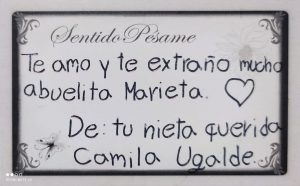 Sentido Pésame
Te amo y te extraño mucho
abuelita Marieta.
De: tu nieta querida
Camila Ugalde